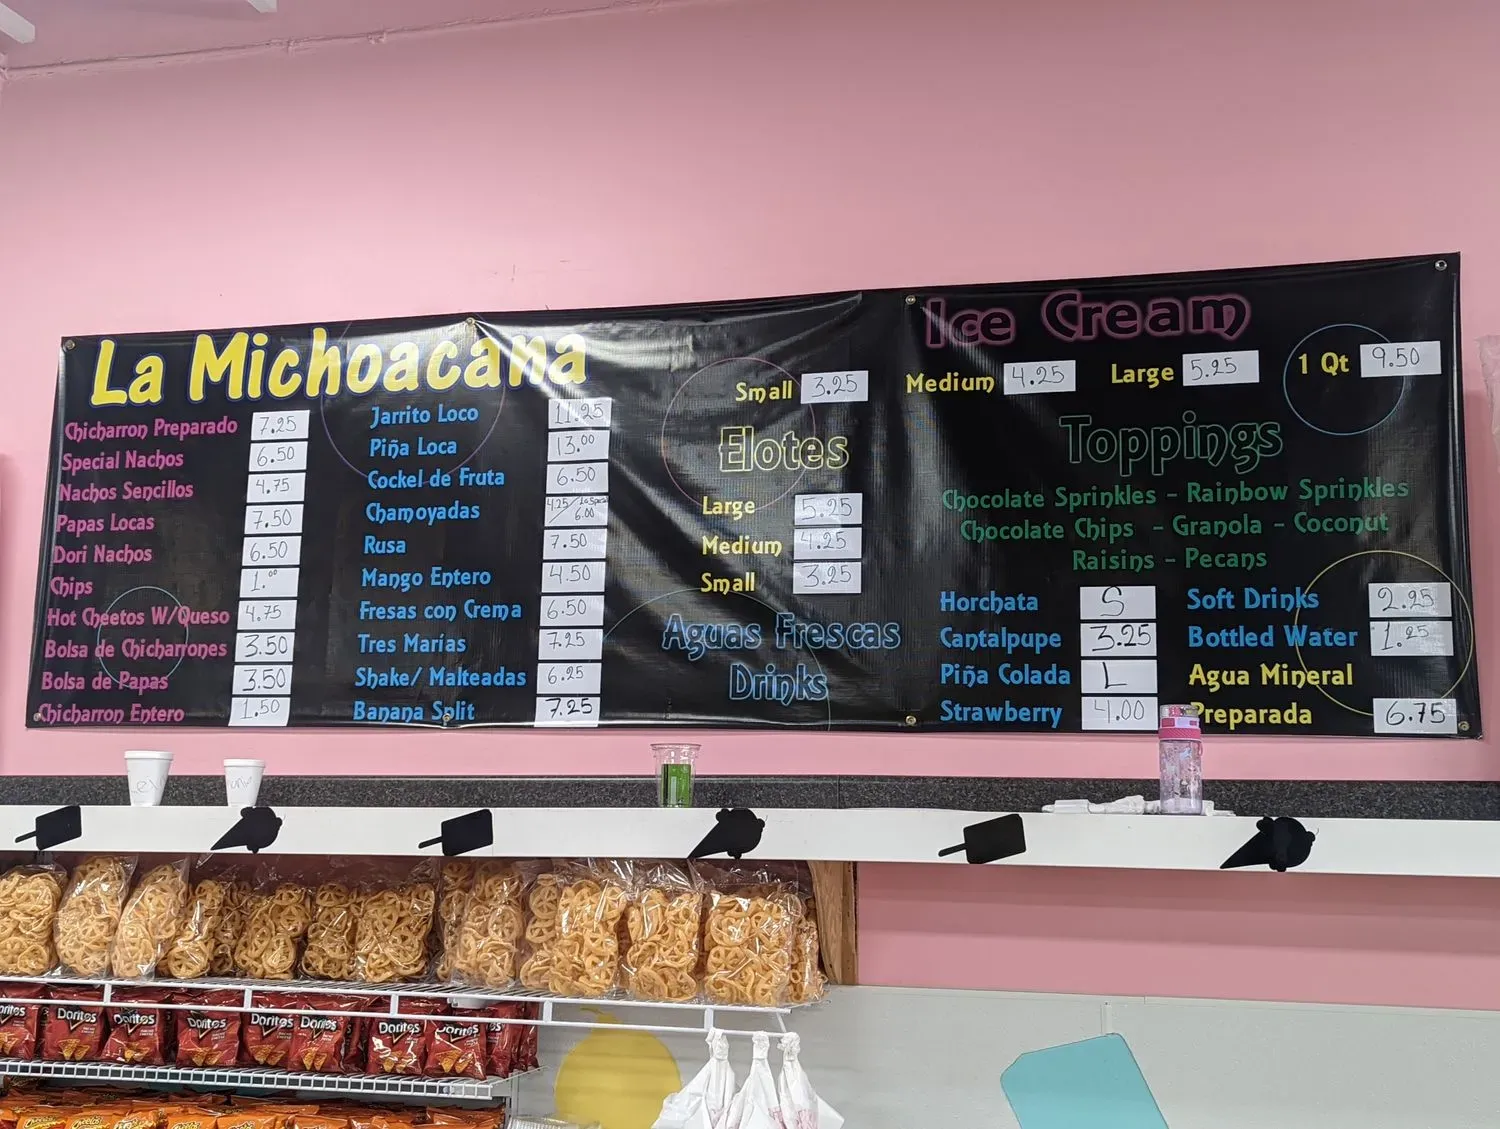 La Michoacana
Chicharron Preparado 7.25
Special Nachos 6.50
Nachos Sencillos 4.75
Papas Locas 7.50
Dori Nachos 6.50
Chips 1.00
Hot Cheetos W/Queso 4.75
Bolsa de Chicharrones 3.50
Bolsa de Papas 3.50
Chicharron Entero 1.50
Jarrito Loco 11.25
Piña Loca 13.00
Cockel de Fruta 6.50
Chamoyadas 4.25/ 6.00
Rusa 7.50
Mango Entero 4.50
Fresas con Crema 6.50
Tres Marías 7.25
Shake/ Malteadas 6.25
Banana Split 7.25
Small 3.25
Elotes
Large 5.25
Medium 4.25
Small 3.25
Aguas Frescas
Drinks
Ice Cream
Medium 4.25 Large 5.25 1 Qt 9.50
Toppings
Chocolate Sprinkles - Rainbow Sprinkles
Chocolate Chips - Granola - Coconut
Raisins - Pecans
Horchata S
Cantalpupe 3.25
Piña Colada L
Strawberry 4.00
Soft Drinks 2.25
Bottled Water 1.25
Agua Mineral
Preparada 6.75
Doritos
Doritos
Doritos
Doritos
Doritos
Doritos
Doritos
Doritos